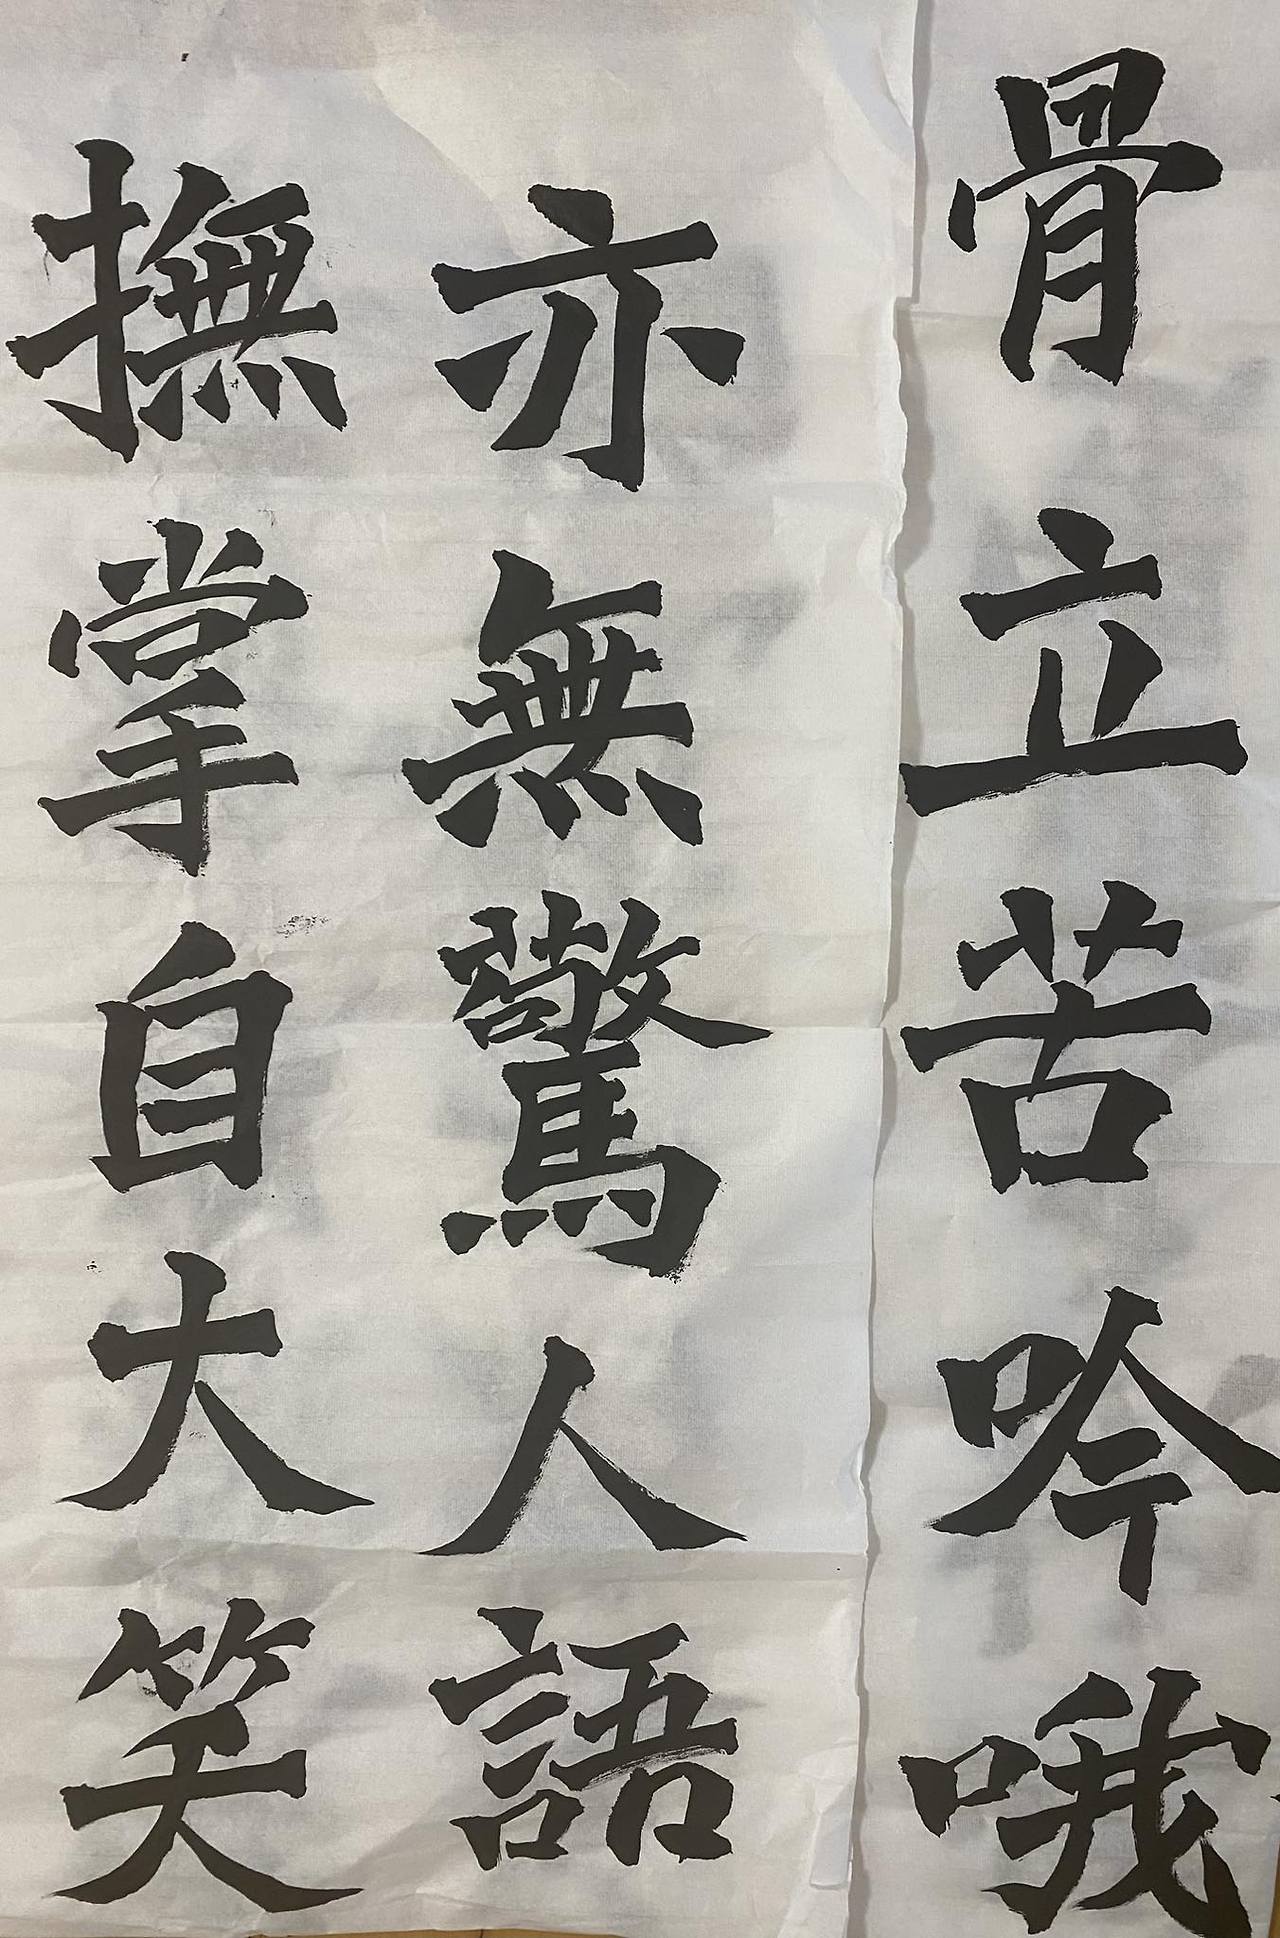 骨立苦吟哦
亦無驚人語
撫掌自大笑